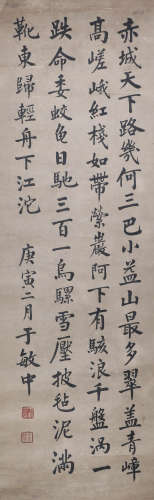 赤城天下路幾何三巴小益山最多翠蓋青嶂
高嵯峨紅棧如帶縈巖阿下有駭浪千盤涡一
跌命委蛟龟日馳三百一烏騾雪壓披毡泥滿
靴東歸輕舟下江沱
庚寅二月于敏中